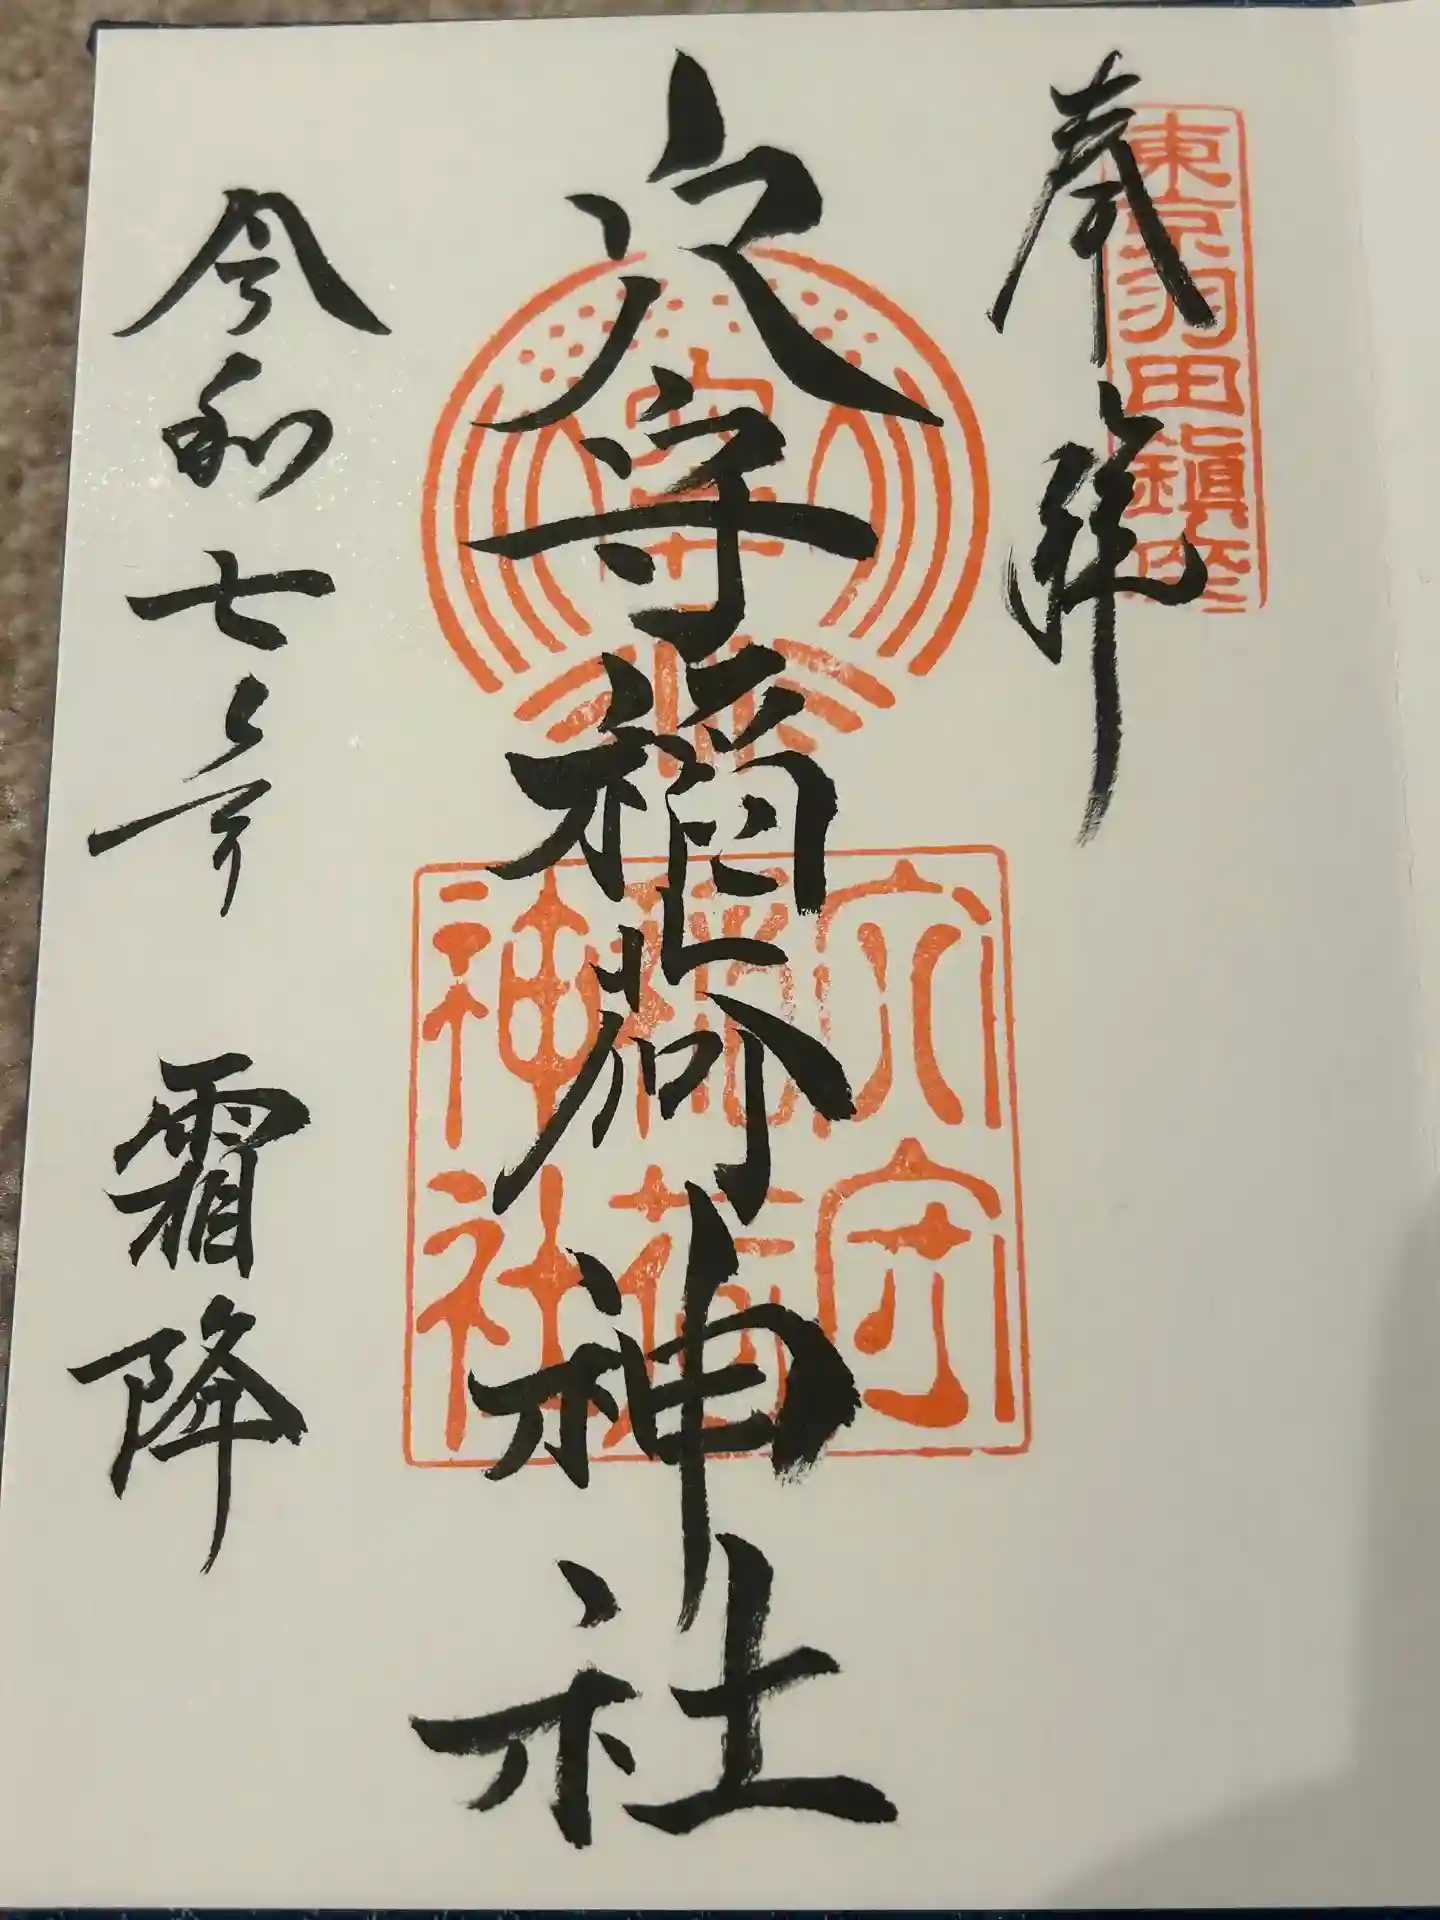 奉拝
東京羽田鎮座
穴守稲荷神社
穴守
稲荷
神社
令和七年
霜降